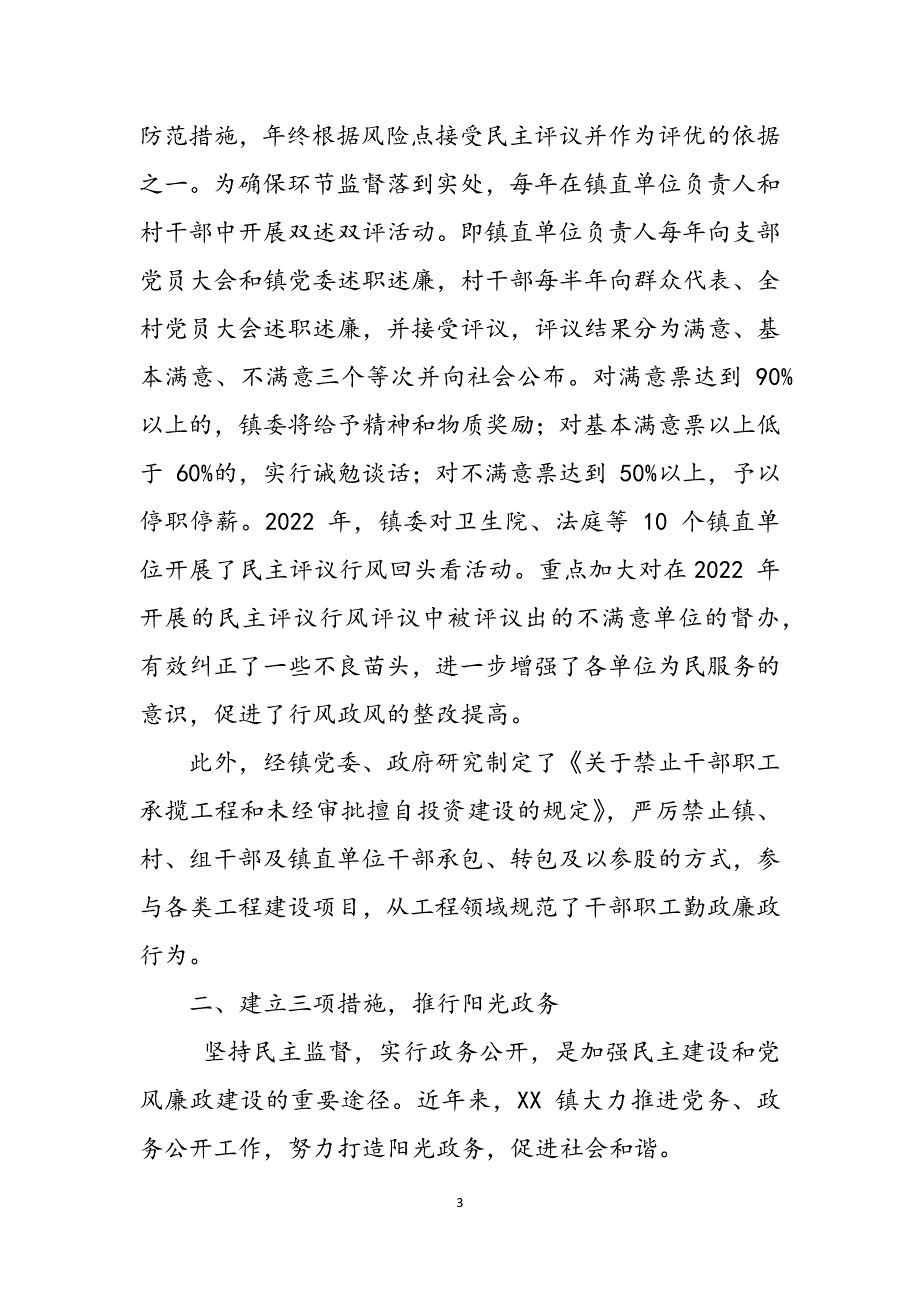 防范措施，年终根据风险点接受民主评议并作为评优的依据
之一。为确保环节监督落到实处，每年在镇直单位负责人和
村干部中开展双述双评活动。即镇直单位负责人每年向支部
党员大会和镇党委述职述廉，村干部每半年向群众代表、全
村党员大会述职述廉，并接受评议，评议结果分为满意、基
本满意、不满意三个等次并向社会公布。对满意票达到 90%
以上的，镇委将给予精神和物质奖励；对基本满意票以上低
于 60%的，实行诫勉谈话；对不满意票达到 50%以上，予以
停职停薪。2022 年，镇委对卫生院、法庭等 10 个镇直单
位开展了民主评议行风回头看活动。重点加大对在2022 年
开展的民主评议行风评议中被评议出的不满意单位的督办，
有效纠正了一些不良苗头，进一步增强了各单位为民服务的
意识，促进了行风政风的整改提高。
此外，经镇党委、政府研究制定了《关于禁止干部职工
承揽工程和未经审批擅自投资建设的规定》，严厉禁止镇、
村、组干部及镇直单位干部承包、转包及以参股的方式，参
与各类工程建设项目，从工程领域规范了干部职工勤政廉政
行为。
二、建立三项措施，推行阳光政务
坚持民主监督，实行政务公开，是加强民主建设和党
风廉政建设的重要途径。近年来，XX 镇大力推进党务、政
务公开工作，努力打造阳光政务，促进社会和谐。
3